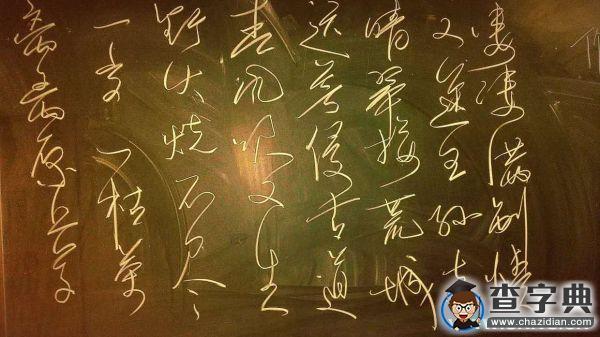 离离原上草
一岁一枯荣
野火烧不尽
春风吹又生
远芳侵古道
晴翠接荒城
又送王孙去
萋萋满别情
查字典
www.chazidian.com